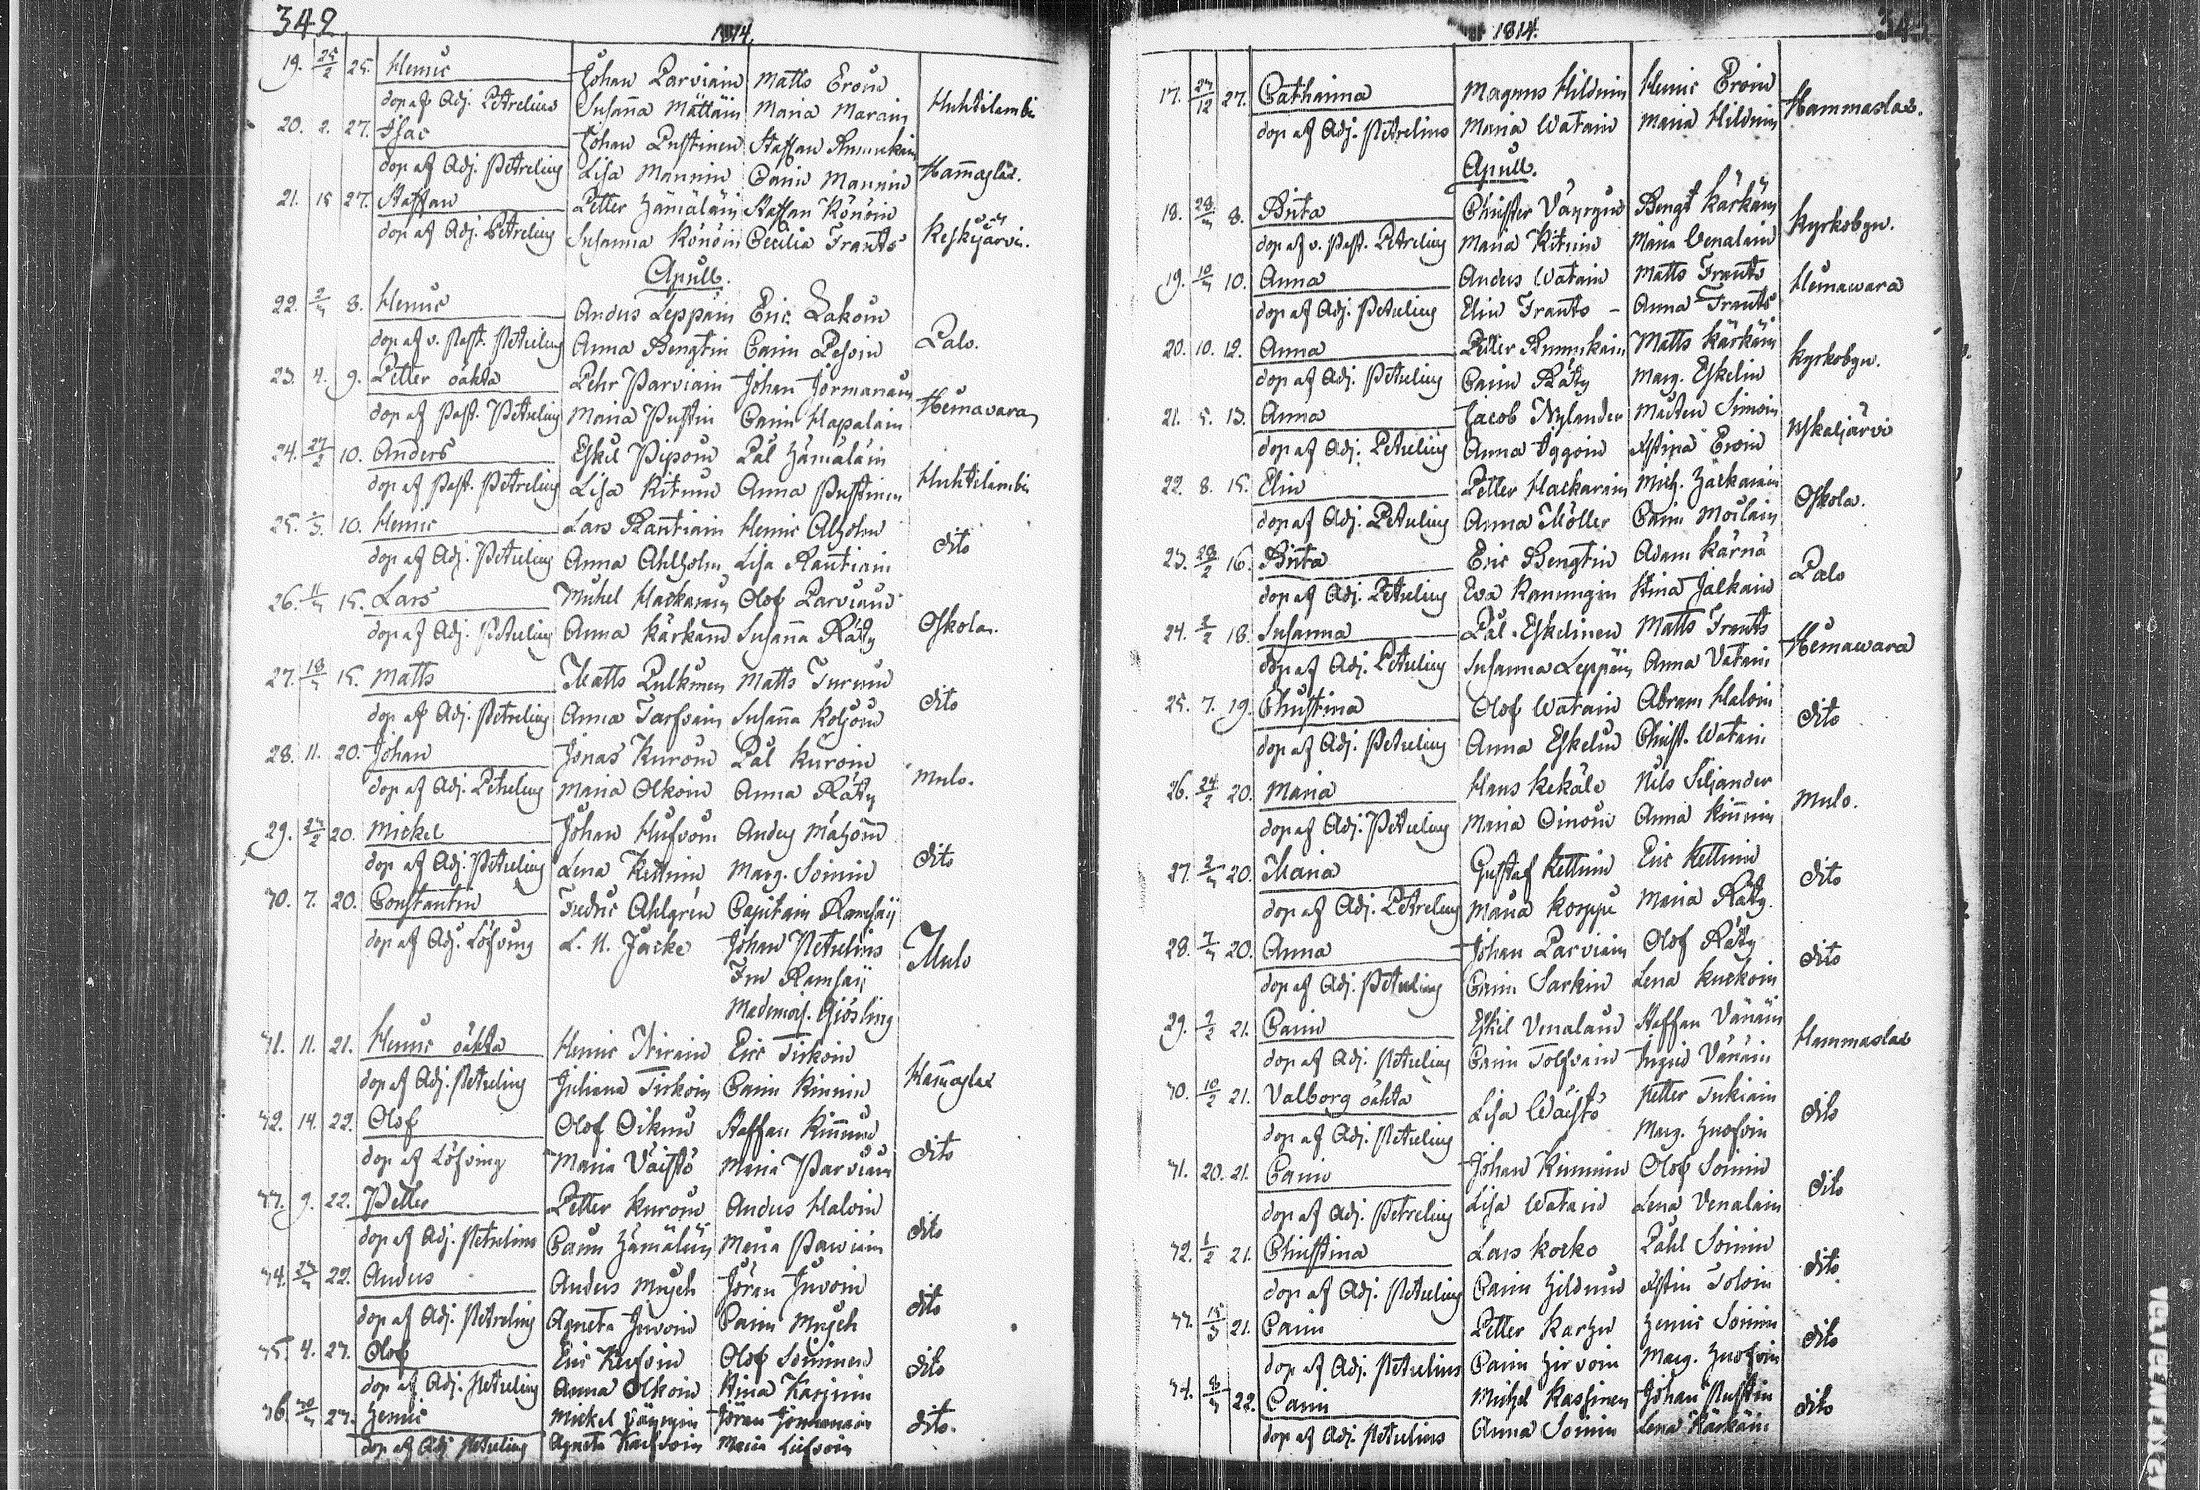 342
1814.
19. 25/2 25. Henric
Johan Parviain Matts Eroin
dop af Adj. Petrelius Susanna Mättäin Maria Marain Huhtilambi
20. 2. 27. Isac
Johan Pustinen Staffan Rummukain
dop af Adj. Petrelius Lisa Mannin Carin Mannin Hammaslax.
21. 15 27. Staffan Petter Hämäläin Staffan Könöin
dop af Adj. Petrelius Susanna Könöin Cecilia Frants Keskijärvi.
Aprill.
22. 2/4 8. Henric Anders Leppäin Eric Lakoin
dop af v. Past. Petrelius Anna Bengtin Carin Pesoin Palo.
23. 4. 9. Petter oäkta Pehr Parviain Johan Jormanain
dop af Past. Petrelius Maria Pustin Carin Hapalain Heinavara
24. 27/2 10. Anders Eskil Piipoin Pål Hämäläin
dop af Past. Petrelius Lisa Kitunin Anna Pustinen Huhtilambi
25. 10. Henric Lars Rantiain Henric Ahlholm
dop af Adj. Petrelius Anna Ahlholm Lisa Rantiain dito
26. 11/4 15. Lars Michel Hackarain Olof Parviain
dop af Adj. Petrelius Anna Kärkäin Susanna Räty Oskola.
27. 18/4 15. Matts Matts Pulkinen Matts Turunin
dop af Adj. Petrelius Anna Tarfvain Susanna Koljoin dito
28. 11. 20. Johan Jonas Kuroin Pål Kuroin
dop af Adj. Petrelius Maria Olkoin Anna Räty Mulo.
29. 20. Mickel Johan Hufvoin Anders Mähöin
dop af Adj. Petrelius Lena Kettunin Marg. Soinin dito
30. 7. 20. Constantin Fredric Ahlgren Capitain Ramsaij
dop af Adj. Löfving L. U. Jacke Johan Petrelius Mulo
Fru Ramsaij
Mademois. Giösling
31. 11. 21. Henric oäkta Henric Eric Tirkoin
dop af Adj. Petrelius Juliana Tirkoin Carin Kinnin Hammaslax
32. 14. 22. Olof Olof Oikuin Staffan Kinnunin
dop af Löfving Maria Väistö Maria Parviain dito
33. 9. 22. Petter Petter Kuroin Anders Haloin
dop af Adj. Petrelius Carin Hämäläin Maria Parviain dito
34. 22. Anders Anders Mujch Jöran Juvoin
dop af Adj. Petrelius Agneta Juvoin Carin Mujch dito
35. 4. 23. Olof Eric Olof Soininen
dop af Adj. Petrelius Anna Olkoin Stina dito
36. 23. Henric Mickel Väyrynin Jöran Jormanain
dop af Adj. Petrelius Agneta Maria dito.
1814.
343
17. 27/12 27. Catharina Magnus Hildunin Henric Eroin
dop af Adj. Petrelius Maria Watain Maria Hildunin Hammaslax.
Aprill.
18. 28/3 8. Brita Christer Väyrynin Bengt Kärkäin
dop af v. Past. Petrelius Maria Kitunin Maria Venalain Kyrkobyn.
19. 10/4 10. Anna Anders Watain Matts Frants
dop af Adj. Petrelius Elin Frants - Anna Frants Heinawara
20. 10. 12. Anna Petter Rummukain Matts Kärkäin
dop af Adj. Petrelius Carin Räty Marg. Eskelin Kyrkobyn.
21. 5. 13. Anna Jacob Nylander Mårten Simoin
dop af Adj. Petrelius Anna Iggoin Eroin Uskaljärvi
22. 8. 15. Elin Petter Hackarain Mich. Hackarain
dop af Adj. Petrelius Anna Möller Carin Moilain Oskola.
23. 28/2 16. Brita Eric Bengtin Adam Kärnä
dop af Adj. Petrelius Eva Stina Jalkain Palo
24. 2/2 18. Susanna Pål Eskelinen Matts Frants
dop af Adj. Petrelius Susanna Leppäin Anna Vatain Heinawara
25. 7. 19. Christina Olof Watain Abram Haloin
dop af Adj. Petrelius Anna Eskelin Christ. Watain dito
26. 24/2 20. Maria Hans Kekäle Nils Siljander
dop af Adj. Petrelius Maria Oinoin Anna Kinnunin Mulo.
27. 2/4 20. Maria Gustaf Kettunin Eric Kettunin
dop af Adj. Petrelius Maria Korppi Maria Räty dito
28. 7/4 20. Anna Johan Parviain Olof Räty
dop af Adj. Petrelius Carin Sarkin Lena Kuckoin dito
29. 21. Carin Eskil Venalain Staffan Vänäin
dop af Adj. Petrelius Carin Tolfvain Ingrid Vänäin Hammaslax
30. 10/2 21. Valborg oäkta Lisa Wäistö Petter Tukiain
dop af Adj. Petrelius Marg. dito
31. 20. 21. Carin Johan Kinnunin Olof Soinin
dop af Adj. Petrelius Lisa Watain Lena Venalain dito
32. 1/2 21. Christina Lars Korko Påhl Soinin
dop af Adj. Petrelius Carin Hildunin Toloin dito
33. 15/3 21. Carin Petter Karhu Henric Soinin
dop af Adj. Petrelius Carin Hirvoin Marg. dito
34. 8/4 22. Carin Michel Kassinen Johan Pustin
dop af Adj. Petrelius Anna Soinin Lena Kärkäin dito